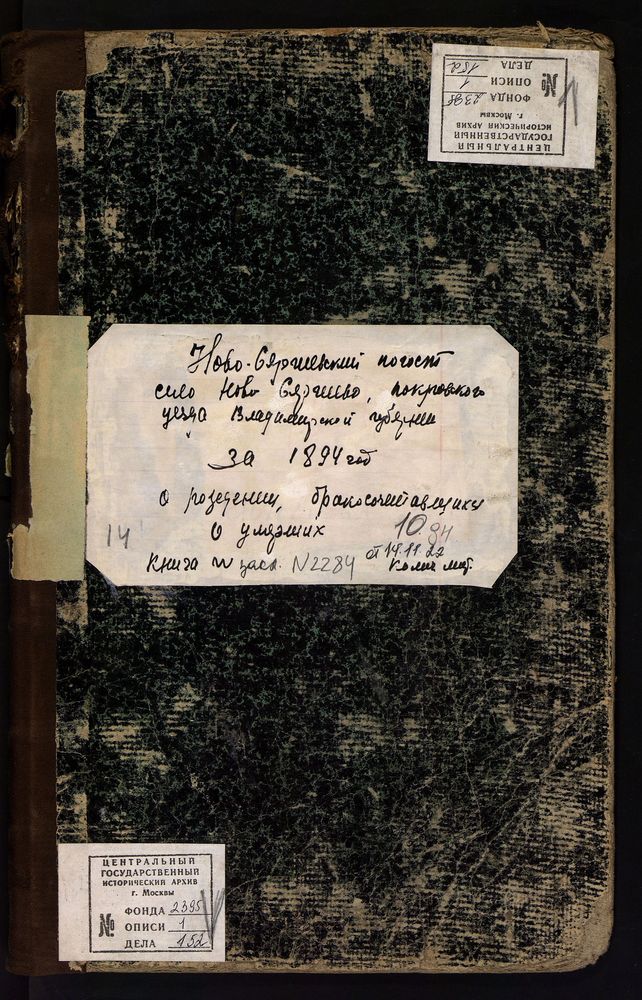 ЦЕНТРАЛЬНЫЙ
ГОСУДАРСТВЕННЫЙ
ИСТОРИЧЕСКИЙ АРХИВ
г. Москвы
№ ФОНДА 2395
ОПИСИ 1
ДЕЛА 152
Ново-Сергиевский погост
село Ново Сергиево, покровского
уезда Владимирской губернии
за 1894 год
о рождении, бракосочитавшихся
О умерших
14
10.94
Книга
N2284
от 14.11.22
ЦЕНТРАЛЬНЫЙ
ГОСУДАРСТВЕННЫЙ
ИСТОРИЧЕСКИЙ АРХИВ
г. Москвы
№ ФОНДА 2395
ОПИСИ 1
ДЕЛА 152